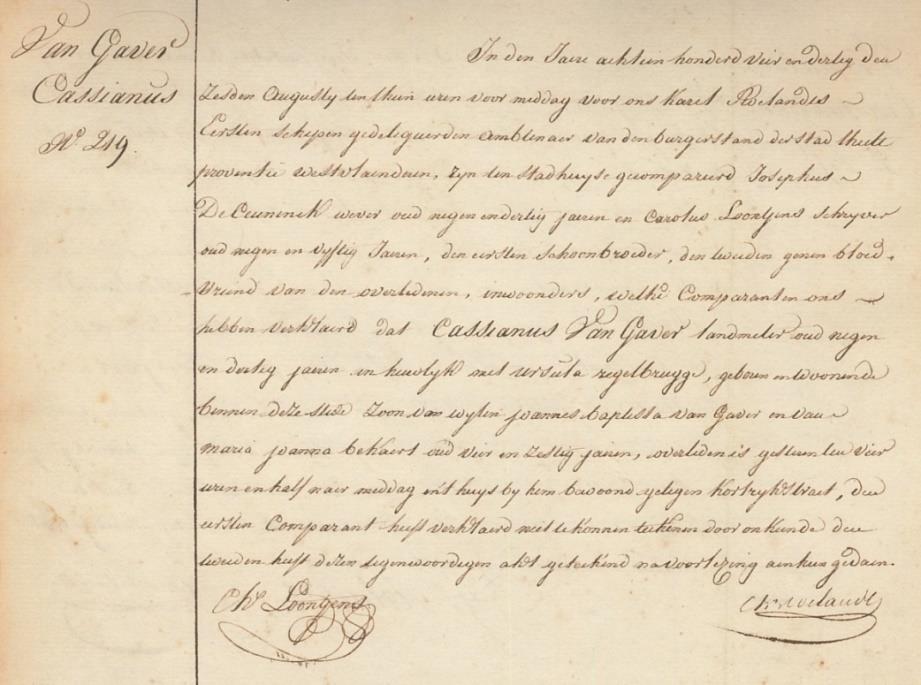 Van Gaver
Cassianus
N.º 219.
In den Jaere achtien honderd vier en dertig den
zesden Augusty ten thien uren voor middag voor ons Karel Roelandts
Eersten schepen gedelegueerden ambtenaer van den burgerstand der stad thielt
proventie westvlaenderen, zyn ten stadhuyse gecompareerd Josephus
De Ceuninck wever oud negen en dertig jaeren en Carolus Loontjens schryver
oud negen en vyftig Jaeren, den eersten schoonbroeder, den tweeden genen bloed-
vriend van den overledenen, inwoonders, welke Comparanten ons
hebben verklaerd dat Cassianus Van Gaver landmeter oud negen
en dertig jaeren in huwlyk met ursula zegelbrugge, geboren en woonende
binnen deze stede Zoon van wylen joannes baptista van Gaver en van
maria joanna beKaert oud vier en zestig jaeren, overleden is gisteren ten vier
uren en half naer middag in't huys by hem bewoond gelegen Kortrykstraet, den
eersten Comparant heeft verklaerd niet te konnen teekenen door onkunde den
tweeden heeft dezen tegenwoordigen akt geteekend na voorlezing aen hun gedaen.
Ch.s Loontjens